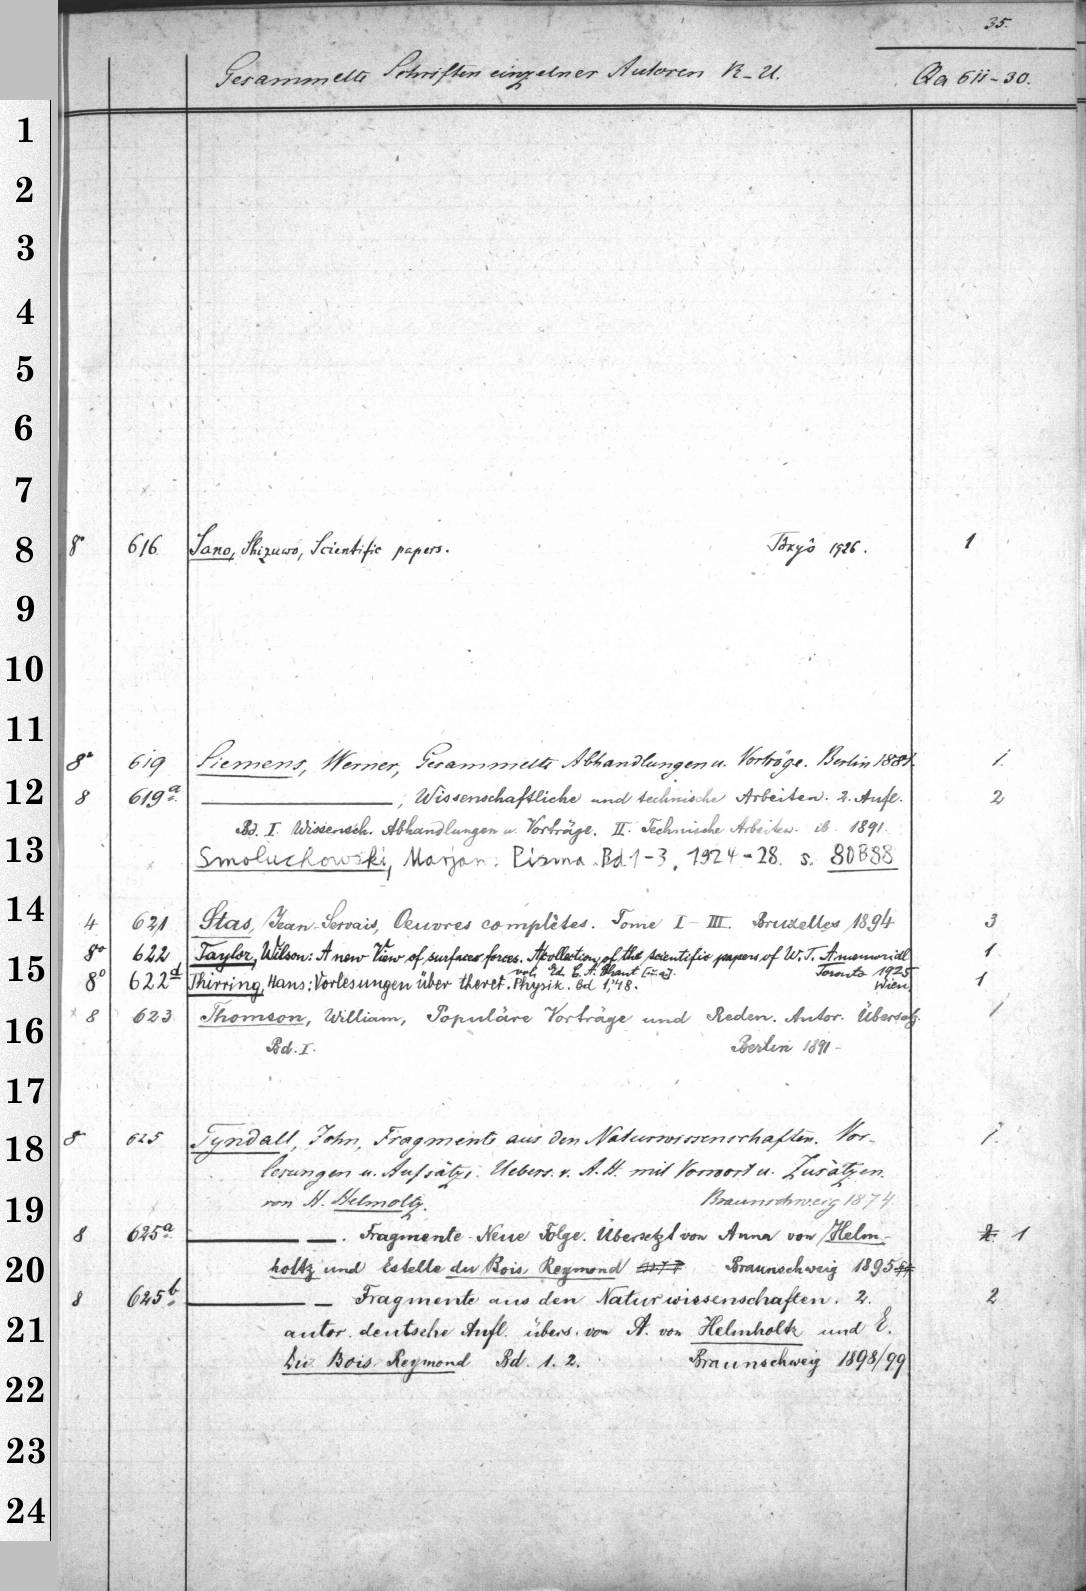 35.
Gesammelte Schriften einzelner Autoren R-U. Qa 611-30.
1
2
3
4
5
6
7
8 8° 616 Sano, Shizuwo, Scientific papers. Tôkyô 1926. 1
9
10
11
8° 619 Siemens, Werner, Gesammelte Abhandlungen u. Vorträge. Berlin 1881. 1.
12 8 619a. ———, Wissenschaftliche und technische Arbeiten. 2. Aufl. 2
Bd. I. Wissensch. Abhandlungen u. Vorträge. II. Technische Arbeiten. ib 1891.
13 Smoluchowski, Marjan: Pisma. Bd 1-3, 1924-28. s. 80B88
14 4 621 Stas, Jean-Servais, Oeuvres complètes. Tome I-III. Bruxelles 1894 3
8° 622 Taylor, Wilson: A new View of surfaces forces. A collection of the scientific papers of W. T. A memorial 1
15 vol. Ed. E. A. Toronto 1925
8° 622d Thirring, Hans: Vorlesungen über theoret. Physik. Bd 1, '48. Wien 1
16 8 623 Thomson, William, Populäre Vorträge und Reden. Autor. Übersetz. 1
Bd. I. Berlin 1891-
17
18 8° 625 Tyndall, John, Fragmente aus den Naturwissenschaften. Vor- 1.
lesungen u. Aufsätze. Uebers. v. A. H. mit Vorwort u. Zusätzen
19 von H. Helmoltz. Braunschweig 1874.
8 625a. ——— —. Fragmente Neue Folge. Übersetzt von Anna von Helm- 1
20 holtz und Estelle du Bois Reymond Braunschweig 1895
8 625b. ——— — Fragmente aus den Naturwissenschaften. 2. 2
21 autor. deutsche Aufl. übers. von A. von Helmholtz und E.
Du Bois Reymond Bd. 1. 2. Braunschweig 1898/99
22
23
24